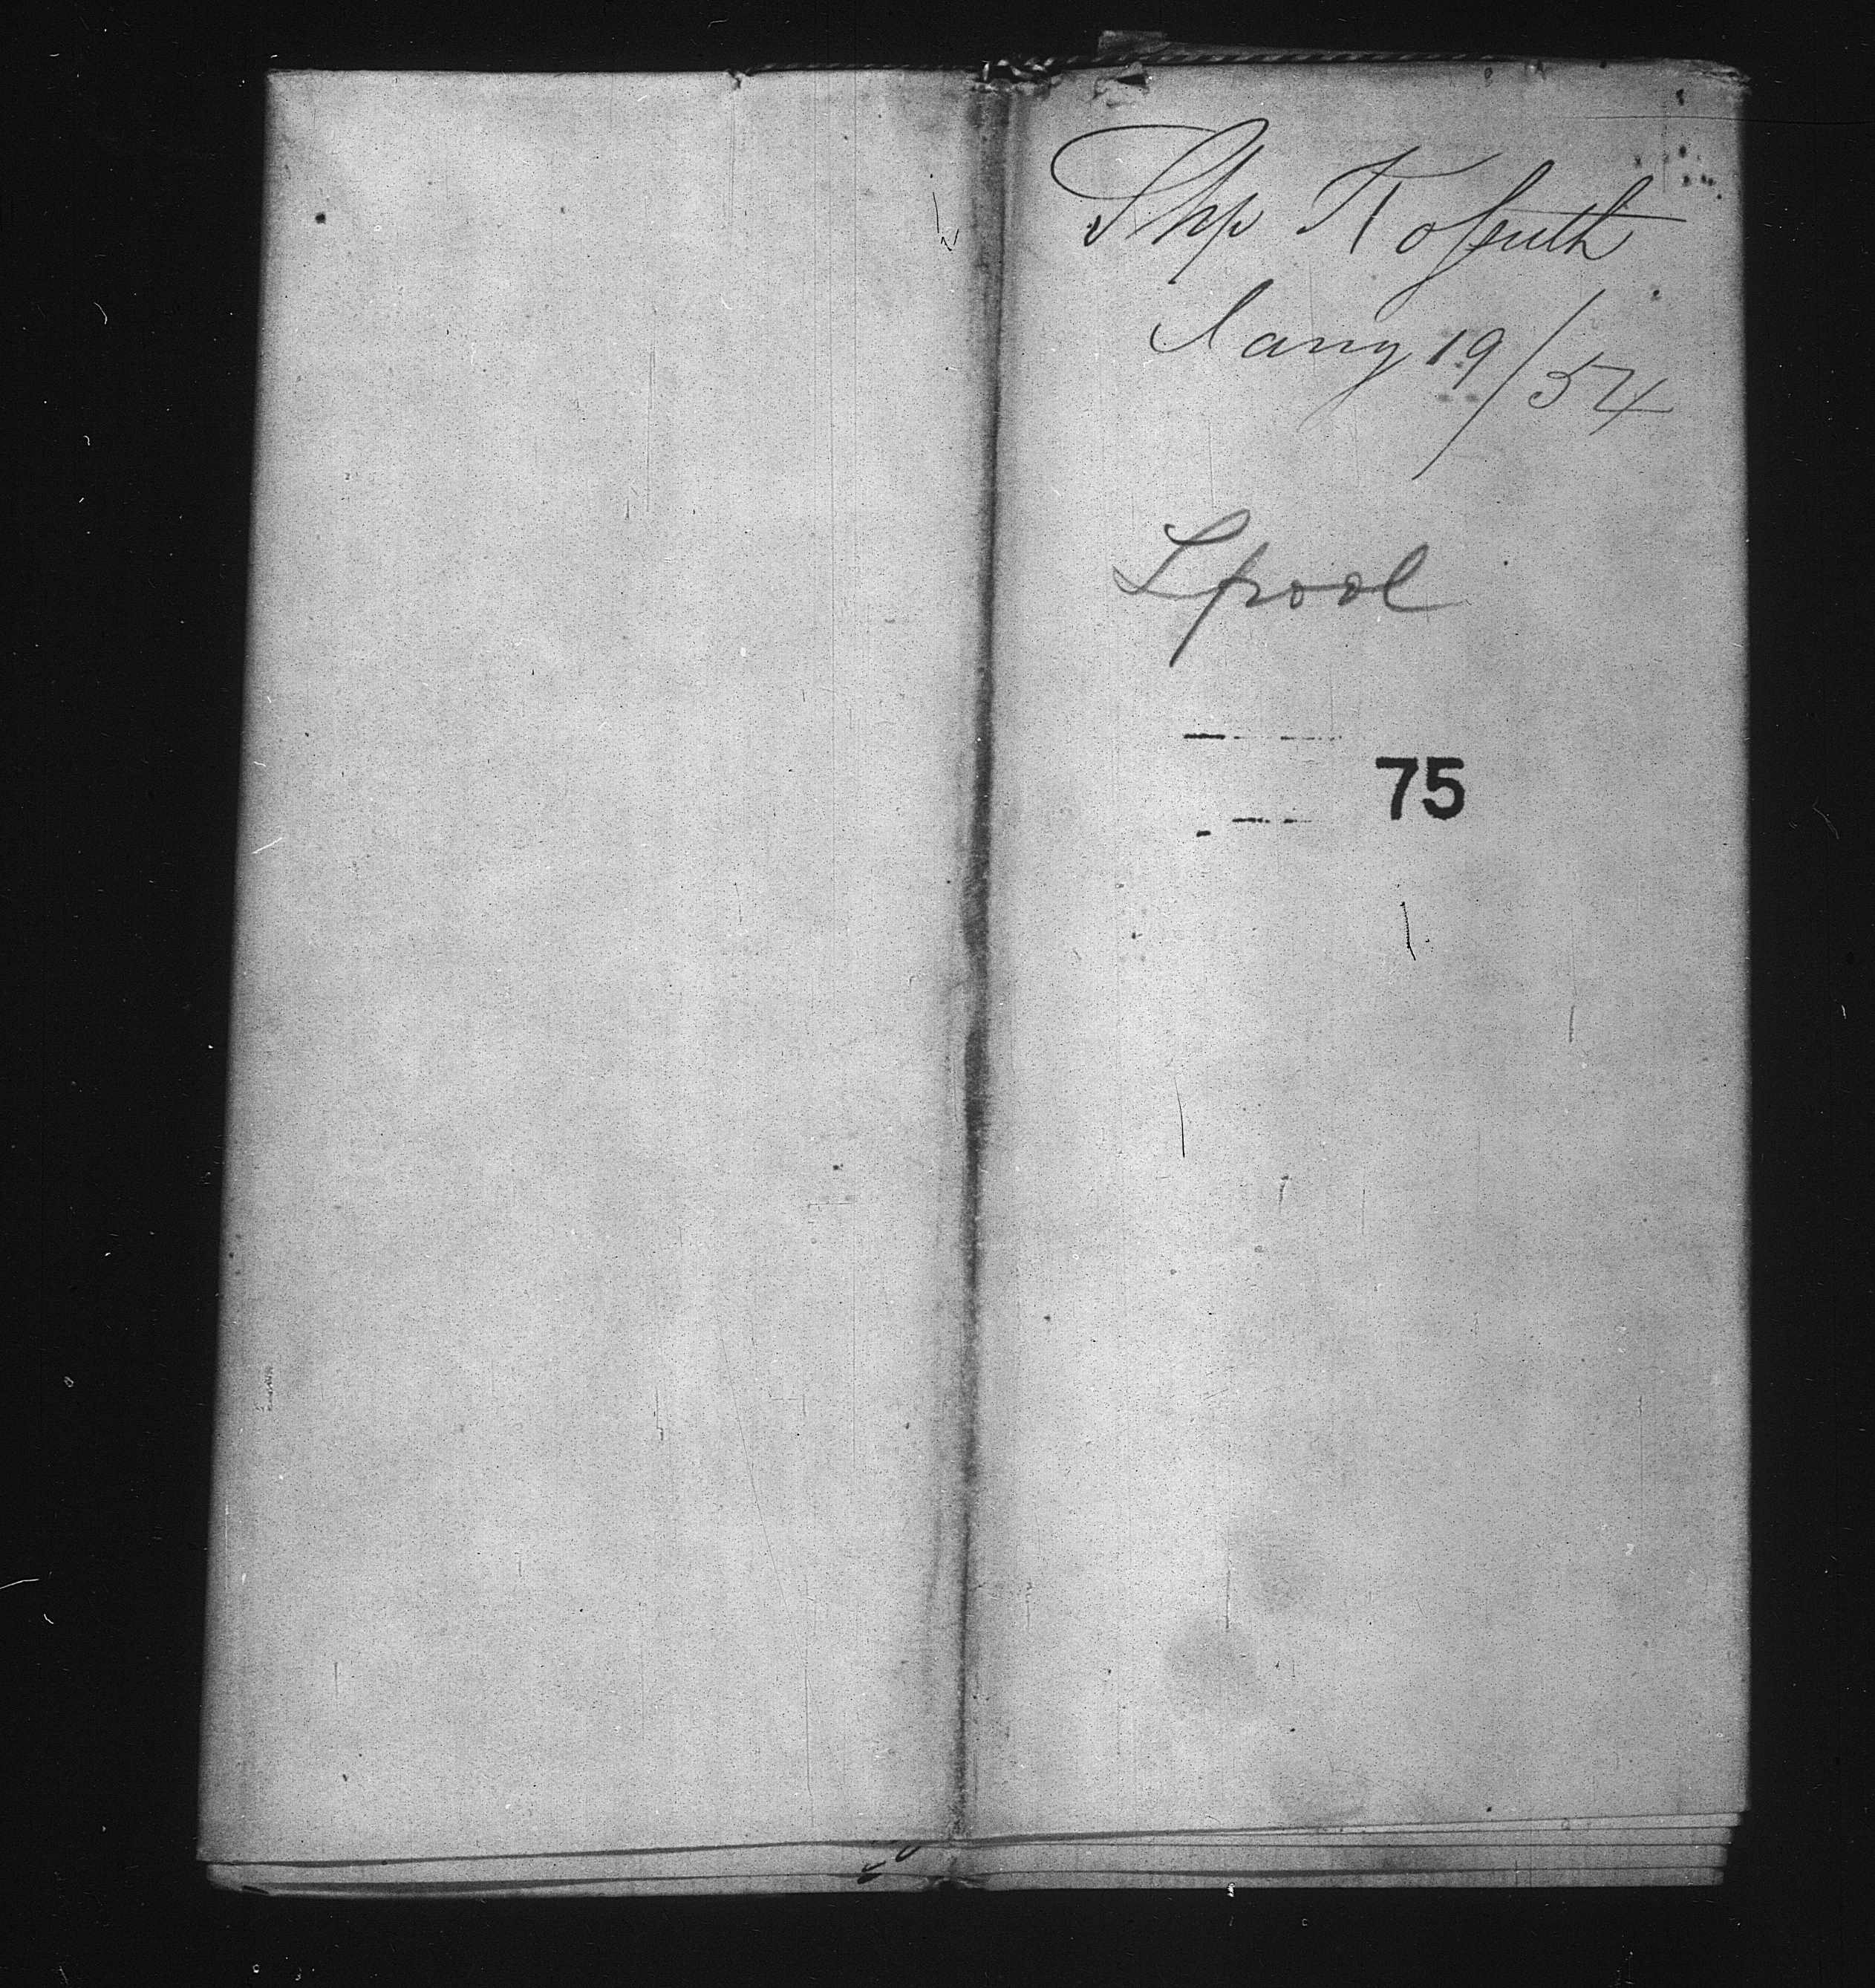 Ship Kossuth
Jany 19/54
Lpool
75